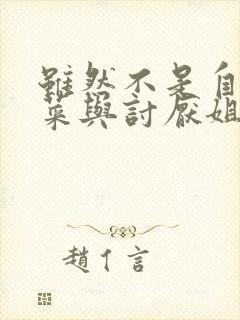 雖然不是自
菜與討厭姐
趙亻言